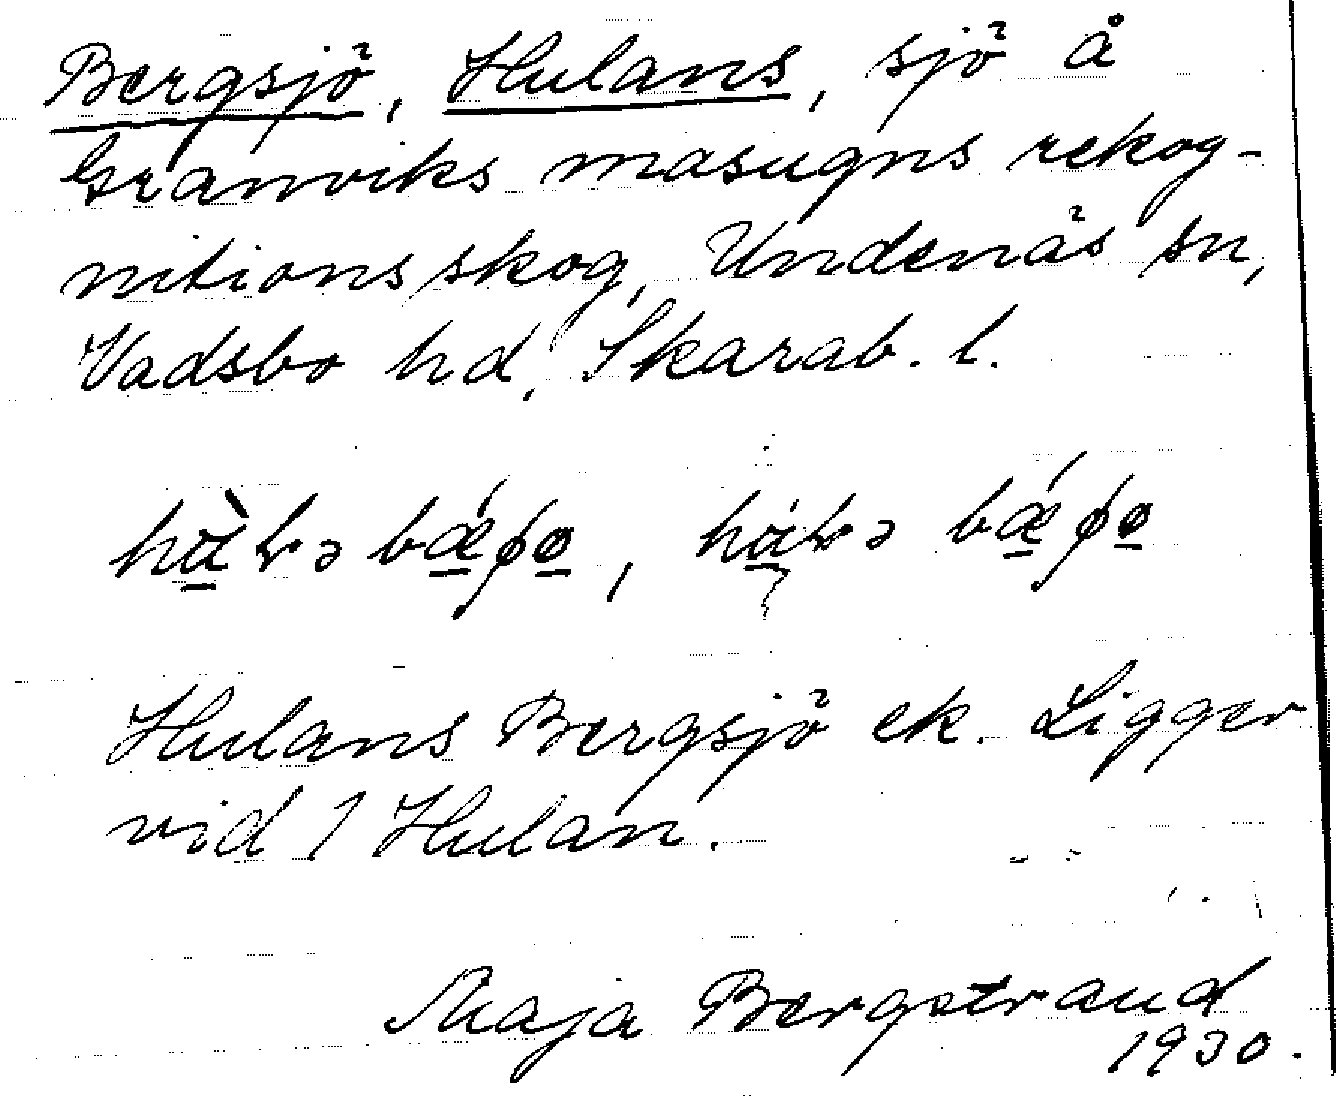 Bergsjö, Hulans, sjö å
Granviks masugns rekog-
nitionsskog, Undenäs sn,
Vadsbo hd, Skarab. l.
Hulans Bergsjö ek. Ligger
vid 1 Hulan.
Maja Bergstrand
1930.